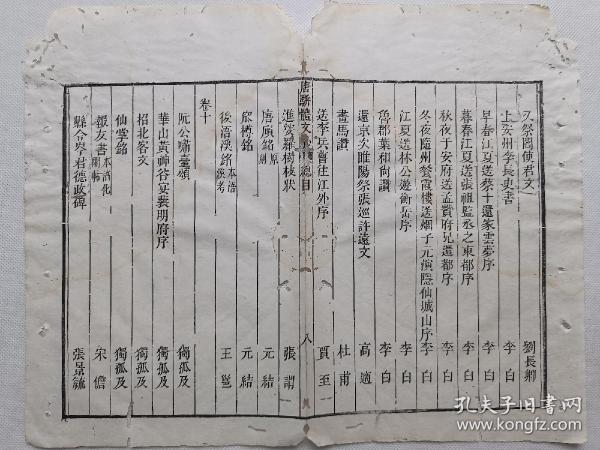 又祭閻使君文 劉長卿
上安州李長史書 李白
早春江夏送蔡十還家雲夢序 李白
暮春江夏送張祖監丞之東都序 李白
秋夜于安府送孟贊府兄還都序 李白
冬夜隨州紫霞樓送烟子元演隱仙城山序 李白
江夏送林公遊衡岳序 李白
魯郡葉和尚讚 李白
還京次睢陽祭張巡許遠文 高適
畫馬讚 杜甫
送李兵曹往江外序 賈至
唐駢體文 總目 八
進娑羅樹枝狀 張謂
唐廎銘 元結
㡳樽銘 元結
後浯溪銘 王邕
卷十
阮公嘯臺頌 獨孤及
華山黃神谷宴裴明府序 獨孤及
招北客文 獨孤及
仙掌銘 獨孤及
報友書 宋儋
縣令岑君德政碑 張景毓
孔夫子旧書网
www.kongfz.com